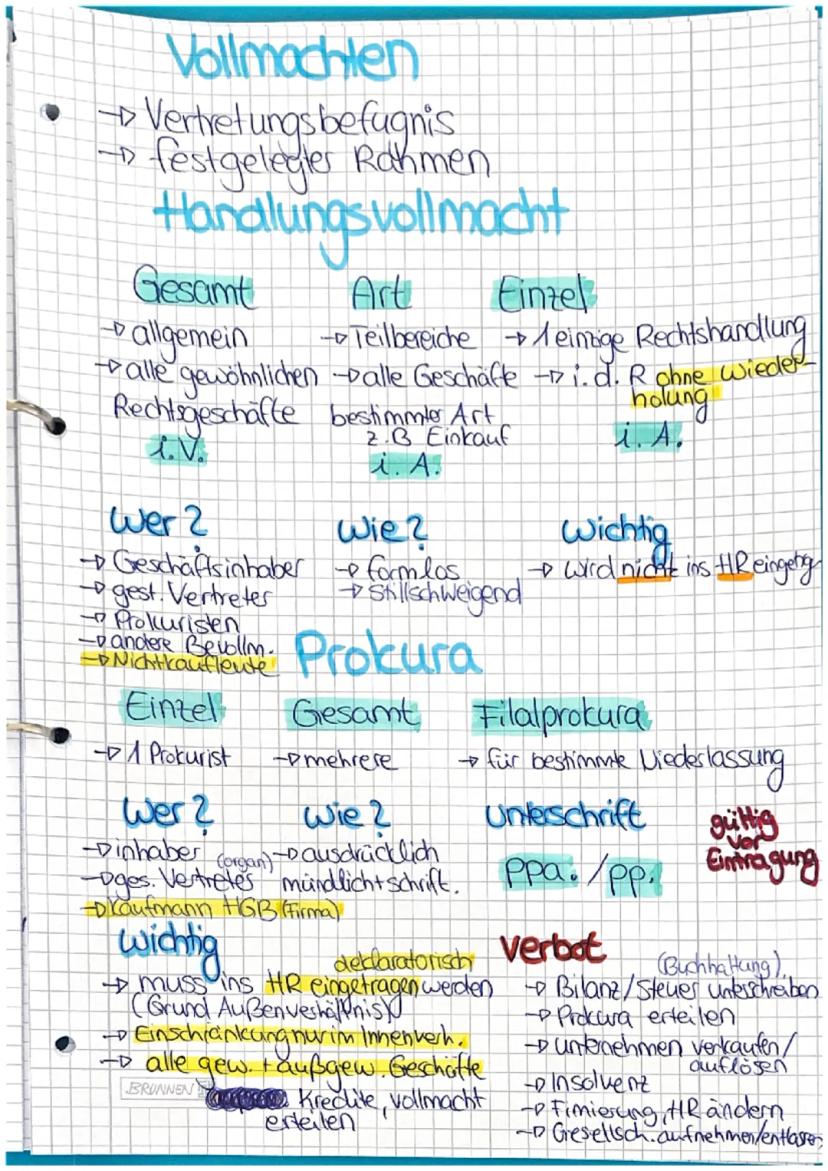 Vollmachten
→ Vertretungsbefugnis
→ festgelegter Rahmen
Handlungsvollmacht
Gesamt Art Einzel
→ allgemein → Teilbereiche → 1 einzige Rechtshandlung
→ alle gewöhnlichen → alle Geschäfte → i.d.R ohne Wieder-
holung
Rechtsgeschäfte bestimmter Art
z.B Einkauf
i.V. i.A. i.A.
Wer? Wie? Wichtig
→ Geschäftsinhaber → formlos → wird nicht ins HR eingetrg
→ gest. Vertreter → stillschweigend
→ Prokuristen
→ andere Bevollm.
→ Nichtkaufleute
Prokura
Einzel Gesamt Filalprokura
→ 1 Prokurist → mehrere → für bestimmte Niederlassung
Wer? Wie? Unterschrift
gültig
vor
Eintragung
→ inhaber (organ) → ausdrücklich
→ ges. Vertreter mündlich + schrift.
ppa. / pp.
→ Kaufmann HGB (Firma)
Wichtig
deklaratorisch
→ muss ins HR eingetragen werden
(Grund Außenverhältnis)
→ Einschränkung nur im Innenverh.
→ alle gew. + außgew. Geschäfte
BRUNNEN
Kredite, Vollmacht
erteilen
Verbot
(Buchhaltung)
→ Bilanz/Steuer unterschreiben
→ Prokura erteilen
→ Unternehmen verkaufen/
auflösen
→ Insolvenz
→ Fimierung, HR ändern
→ Gesellsch. aufnehmen/entlassen